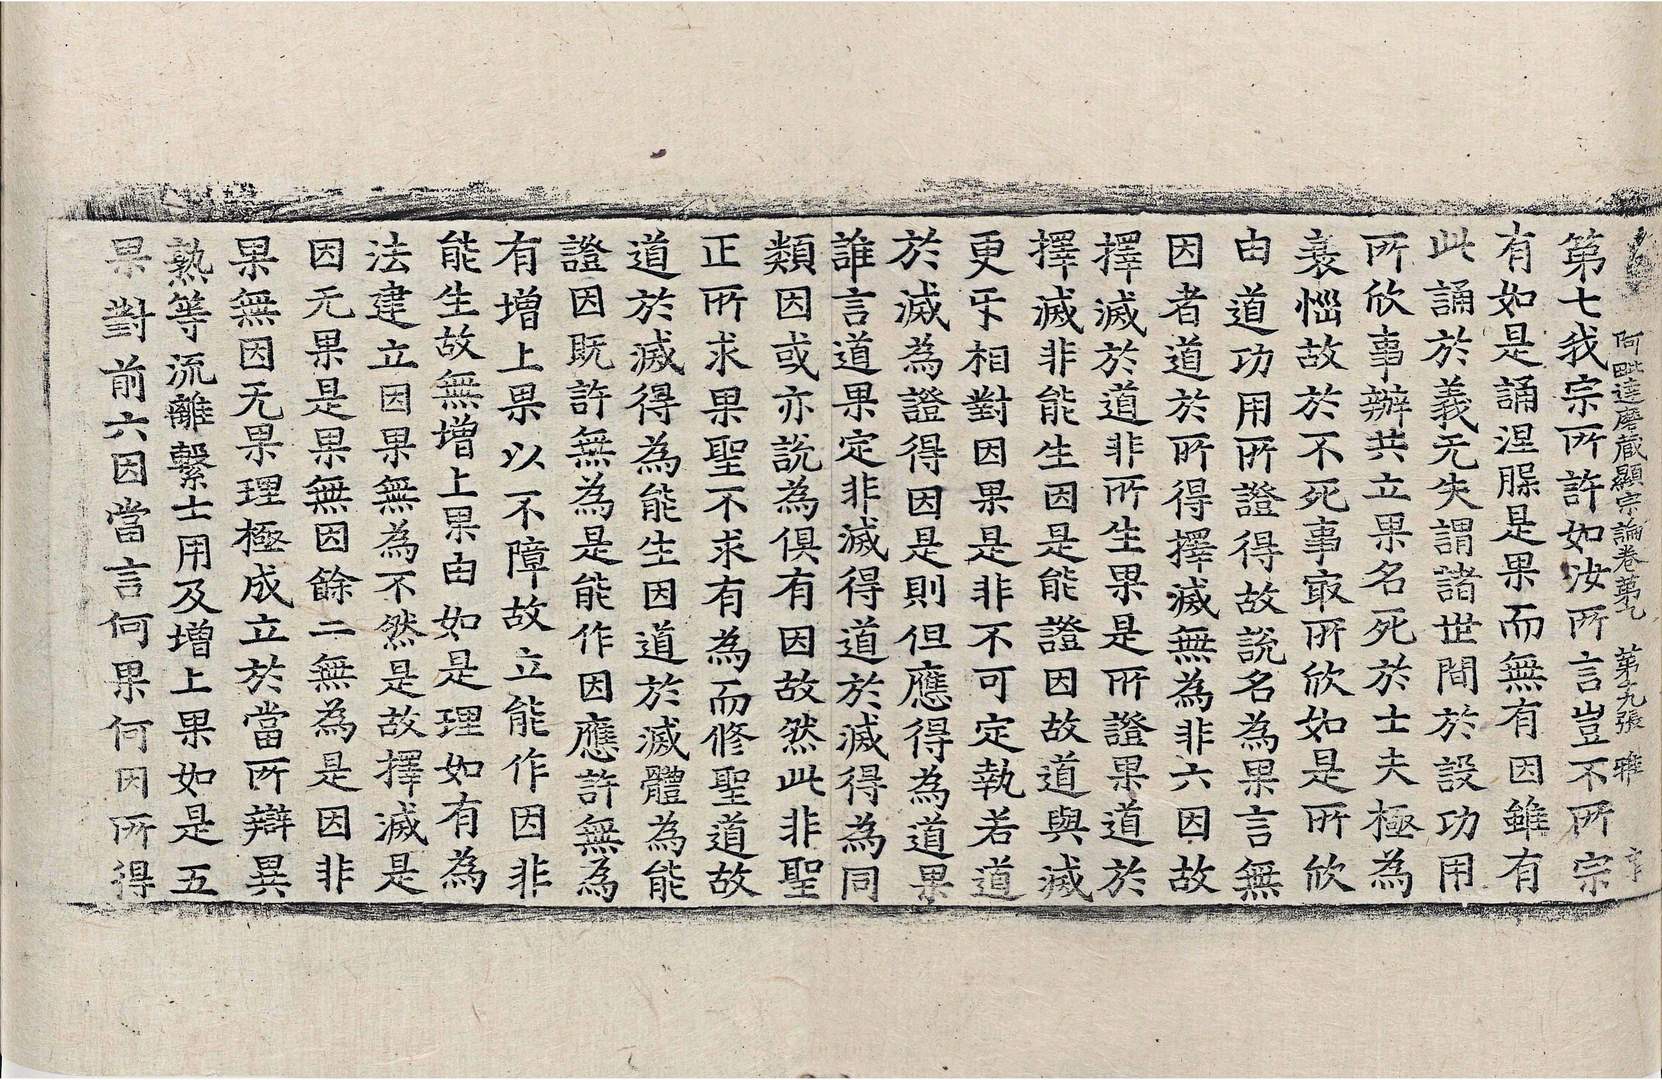 阿毗達磨藏顯宗論卷第九 第九張 雅
第七我宗所許如汝所言豈不所宗
有如是誦涅槃是果而無有因雖有
此誦於義无失謂諸世間於設功用
所欣事辦共立果名死於士夫極為
衰惱故於不死事㝡所欣如是所欣
由道功用所證得故說名為果言無
因者道於所得擇滅無為非六因故
擇滅於道非所生果是所證果道於
擇滅非能生因是能證因故道與滅
更互相對因果是非不可定執若道
於滅為證得因是則但應得為道果
誰言道果定非滅得道於滅得為同
類因或亦說為俱有因故然此非聖
正所求果聖不求有為而修聖道故
道於滅得為能生因道於滅體為能
證因既許無為是能作因應許無為
有增上果以不障故立能作因非
能生故無增上果由如是理如有為
法建立因果無為不然是故擇滅是
因无果是果無因餘二無為是因非
果無因无果理極成立於當所辯異
熟等流離繫士用及增上果如是五
果對前六因當言何果何因所得